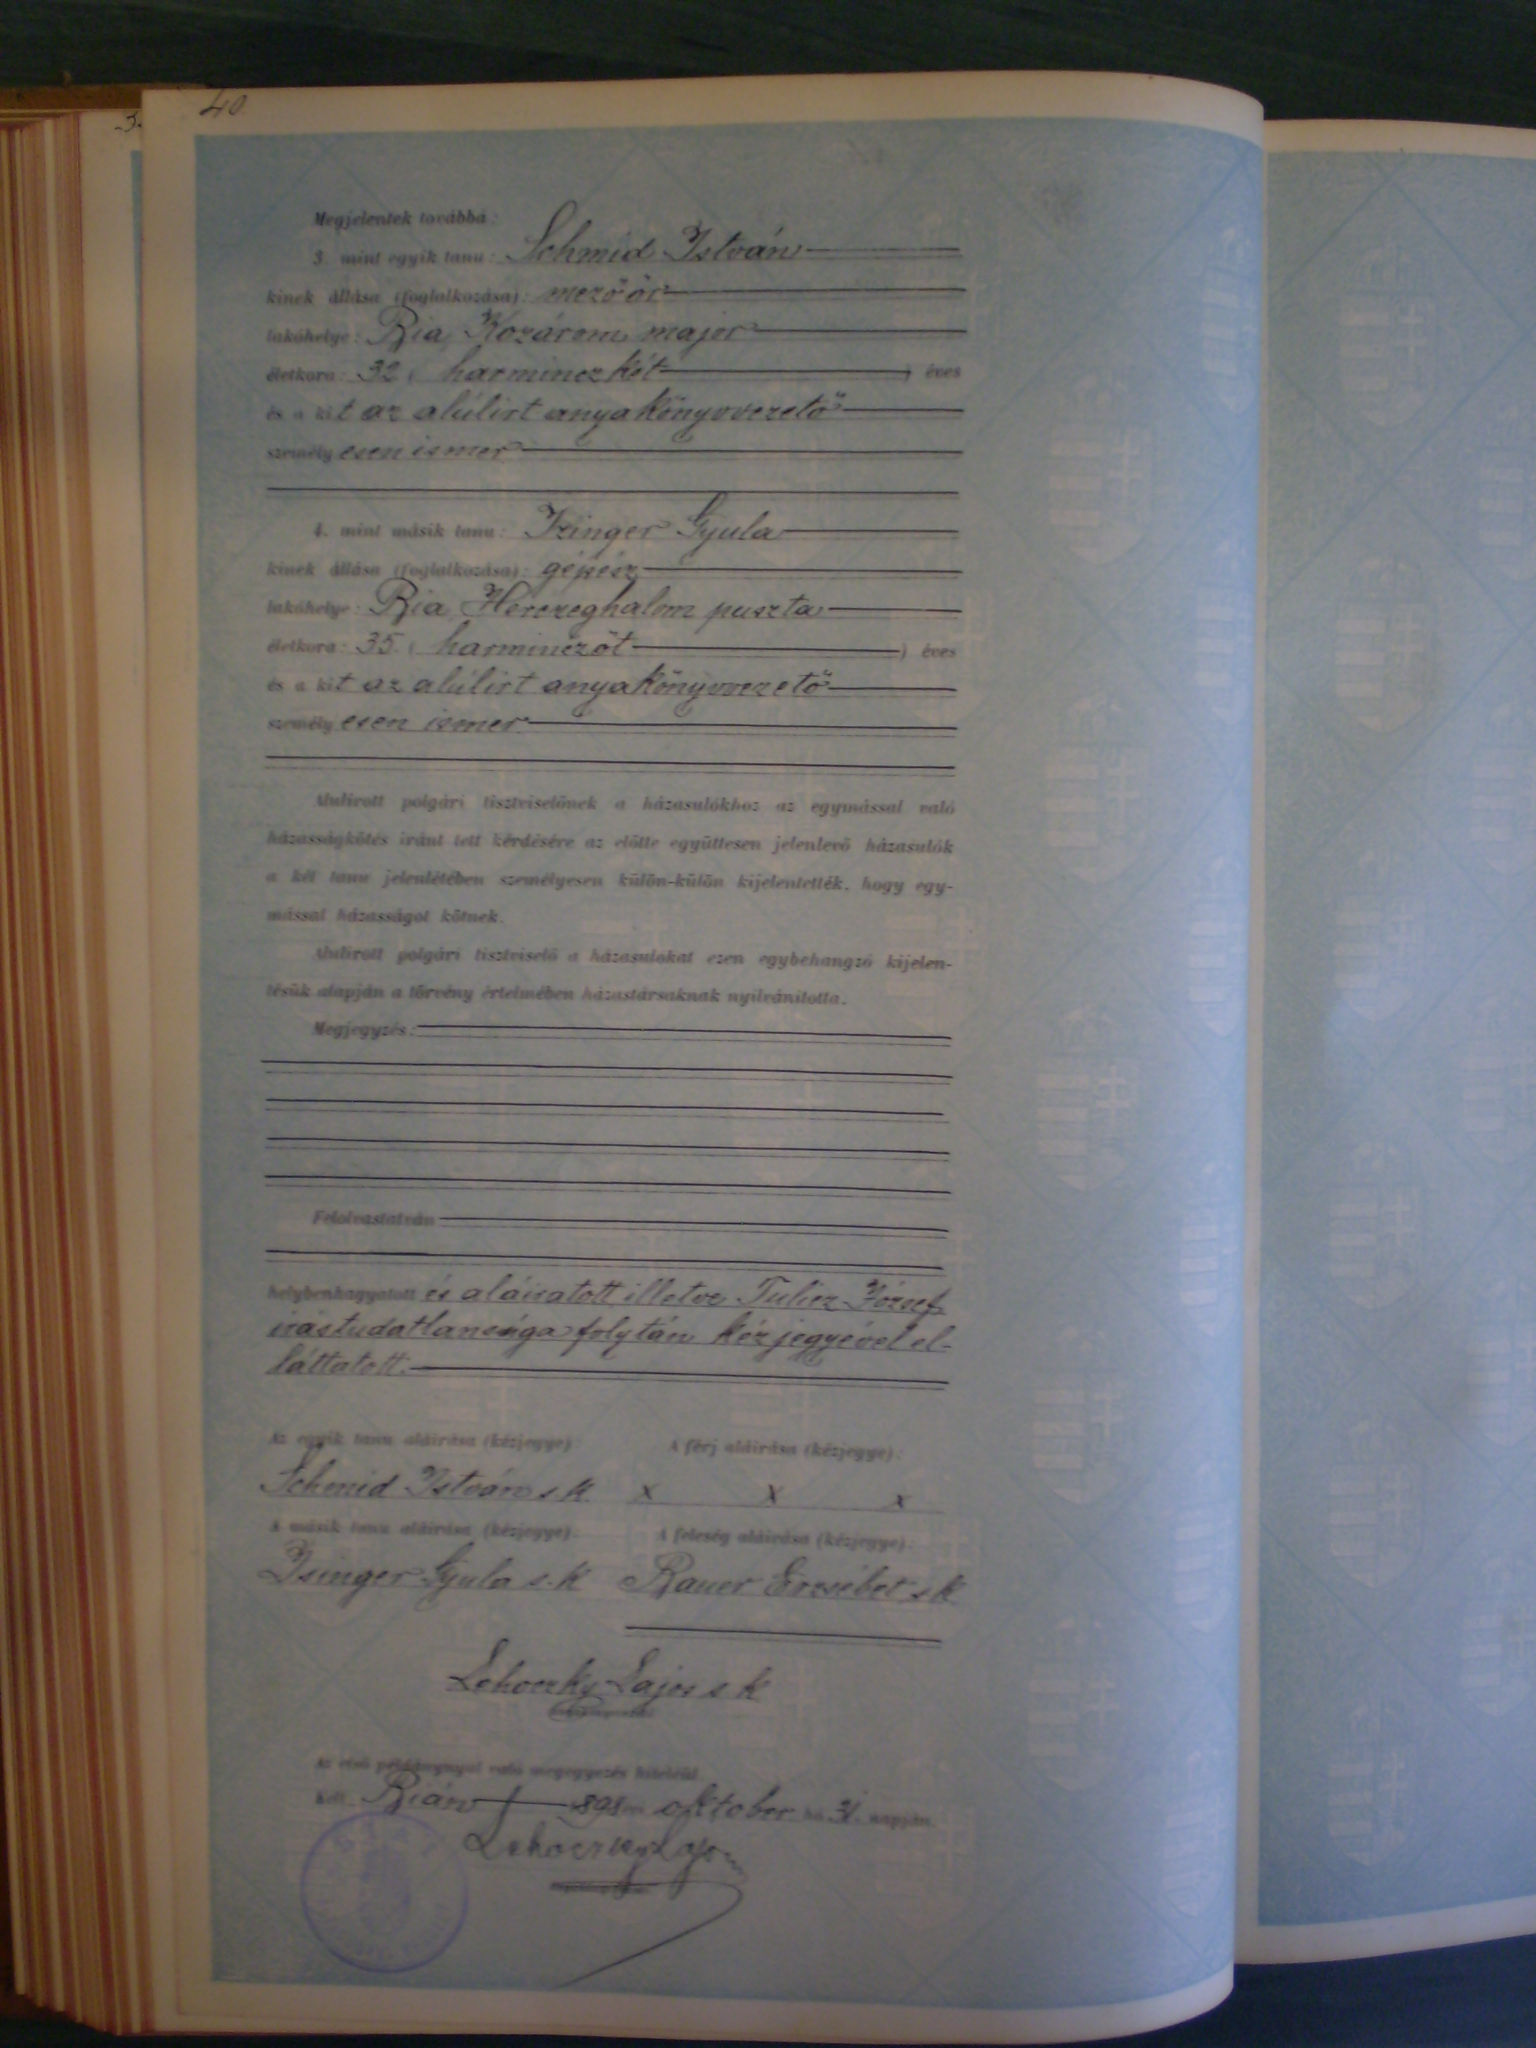 40.
Megjelentek továbbá:
3. mint egyik tanu: Schmid István
kinek állása (foglalkozása): mezőőr
lakóhelye: Bia, Kozárom major
életkora: 32 ( harminczkét ) éves
és a kit az alúlirt anyakönyvvezető
személyesen ismer
4. mint másik tanu: Izinger Gyula
kinek állása (foglalkozása): gépész
lakóhelye: Bia, Herczeghalom puszta
életkora: 35. ( harminczöt ) éves
és a kit az alúlirt anyakönyvvezető
személyesen ismer
Alulirott polgári tisztviselőnek a házasulókhoz az egymással való
házasságkötés iránt tett kérdésére az előtte együttesen jelenlevő házasulók
a két tanu jelenlétében személyesen külön-külön kijelentették, hogy egy-
mással házasságot kötnek.
Alulirott polgári tisztviselő a házasulókat ezen egybehangzó kijelen-
tésük alapján a törvény értelmében házastársaknak nyilvánította.
Megjegyzés:
Felolvastatván
helybenhagyatott és aláiratott illetve Tulicz József
irástudatlansága folytán kézjegyével el-
láttatott.
Az egyik tanu aláirása (kézjegye): A férj aláirása (kézjegye):
Schmid István s. k. x x x
A másik tanu aláirása (kézjegye): A feleség aláirása (kézjegye):
Isinger Gyula s. k Bauer Erzsébet s k
Lehoczky Lajos s k
Az első példánynyal való megegyezés hiteléül
Kelt Bián 1898 évi oktober hó 31. napján.
Lehoczky Lajos